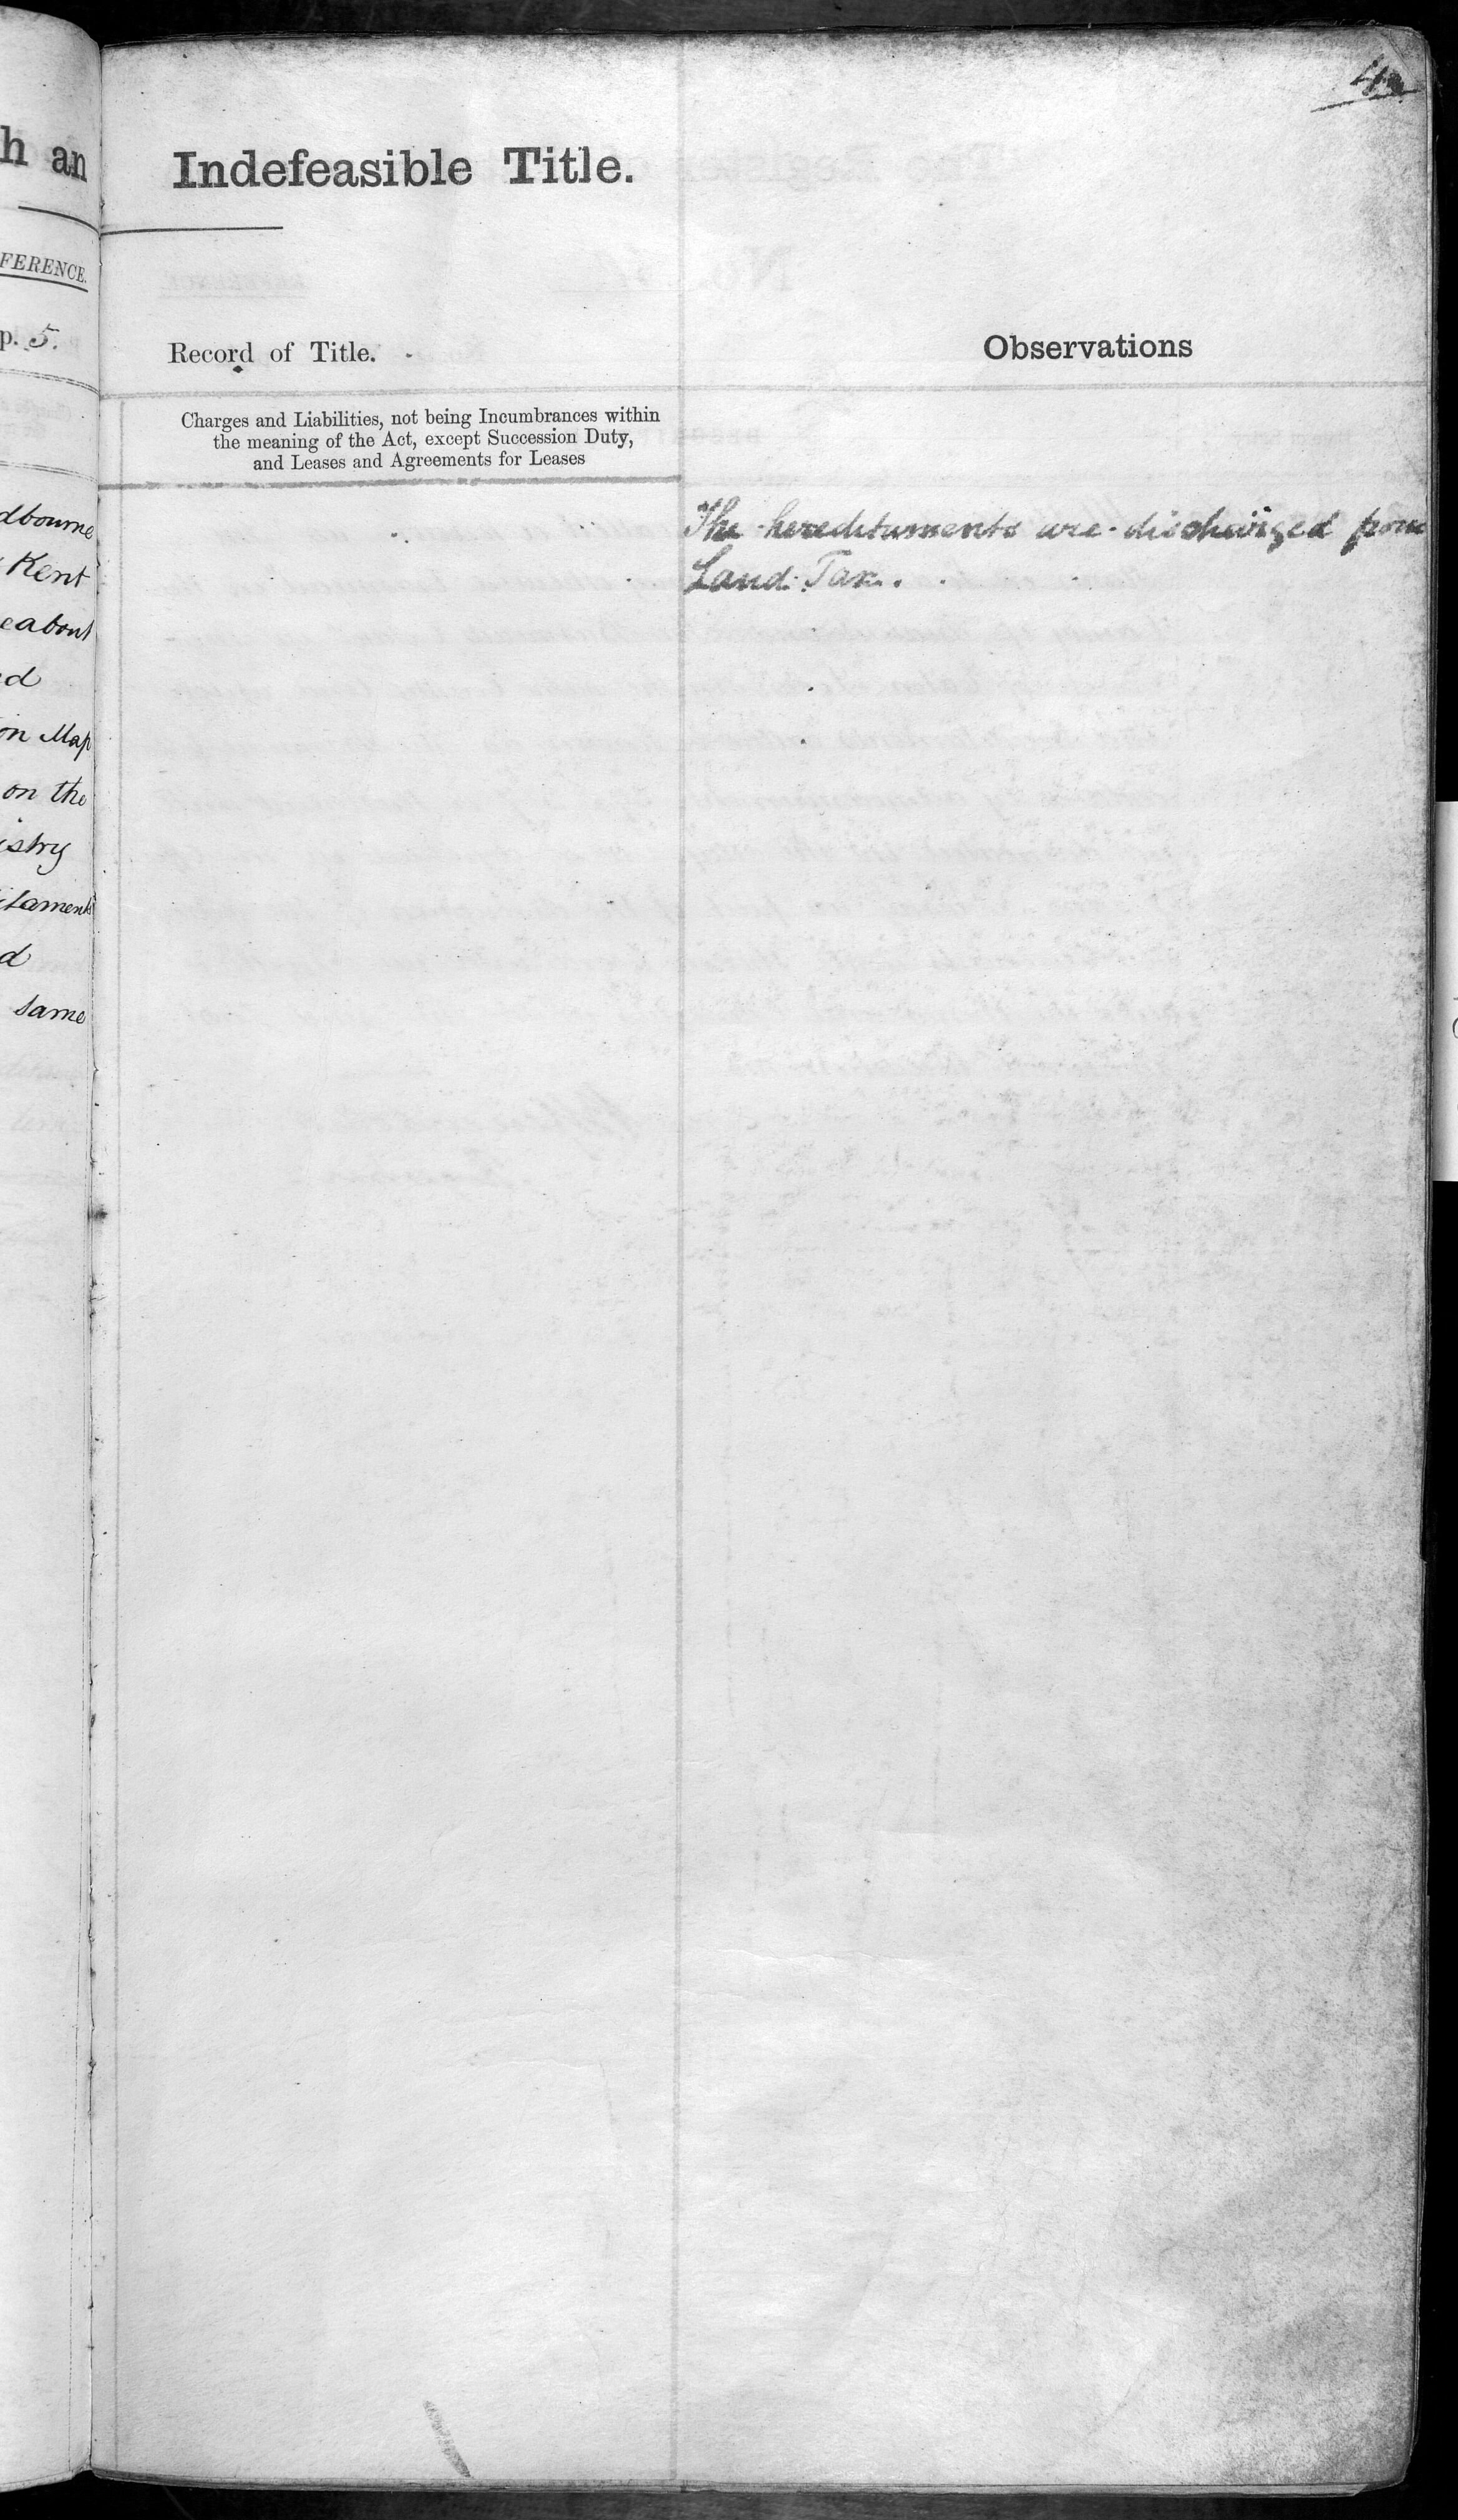 h an
FERENCE.
p. 5.
dbourne
Kent
eabout
d
on Map
on the
istry
itaments
d
same
Indefeasible Title.
Record of Title.
Observations
Charges and Liabilities, not being Incumbrances within
the meaning of the Act, except Succession Duty,
and Leases and Agreements for Leases
The hereditaments are discharged from
Land Tax.